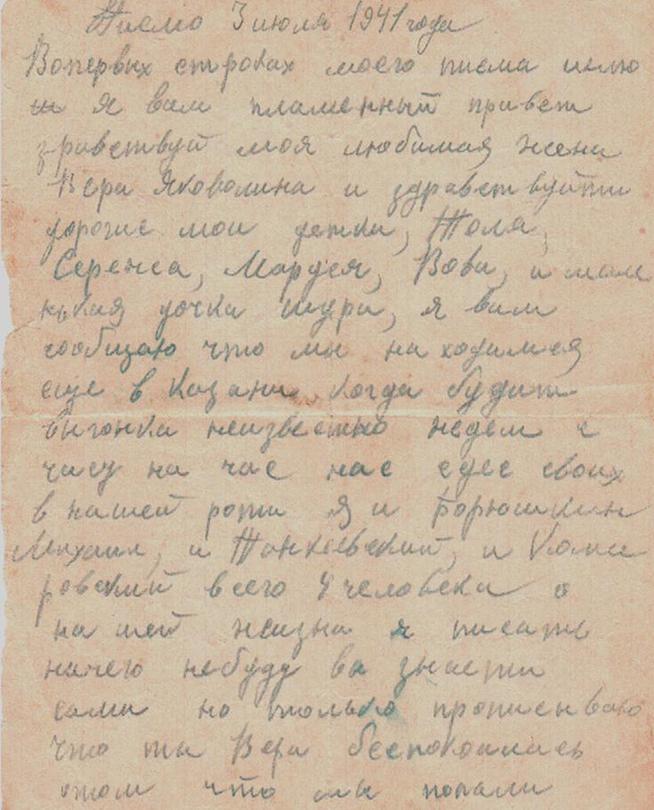 Писмо 3 июля 1941 года
Вопервых строках моего писма шлю
ш я вам пламенный привет
зравствуй моя любимая жена
Вера Яковолина и здравствуйти
дорогие мои детки, Толя,
Сережа, Маруся, Вова, и мале
нькая дочка шура, я вам
сообщаю что мы находимся
еще в Казани когда будит
выгонка неизвестно ждем с
часу на час нас едес своих
в нашей роти Я и Форюшкин
Михаил, и Танкеевский, и Кома
ровский всего 4 человека о
нашей жизна я писать
начего небуду ва знаети
сами но только прописываю
что ты Вера беспокоилась
отом что мы попали